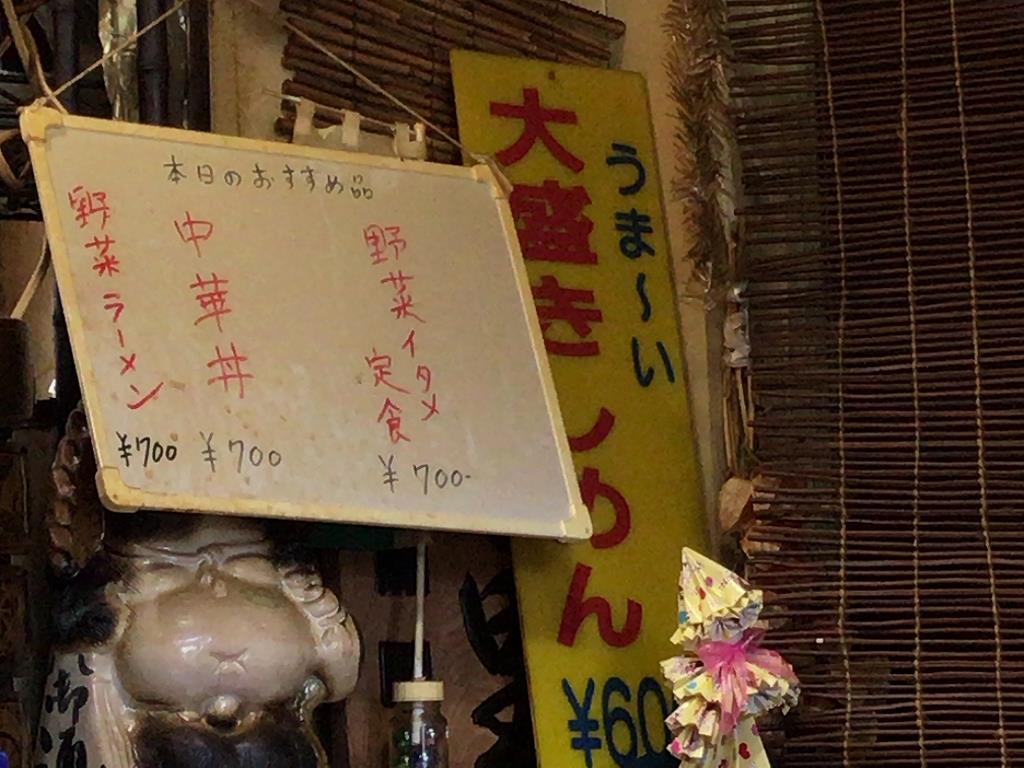 本日のおすすめ品
野菜イタメ
定食
¥700-
中華丼
¥700
野菜ラーメン
¥700
うま〜い
大盛き
めん